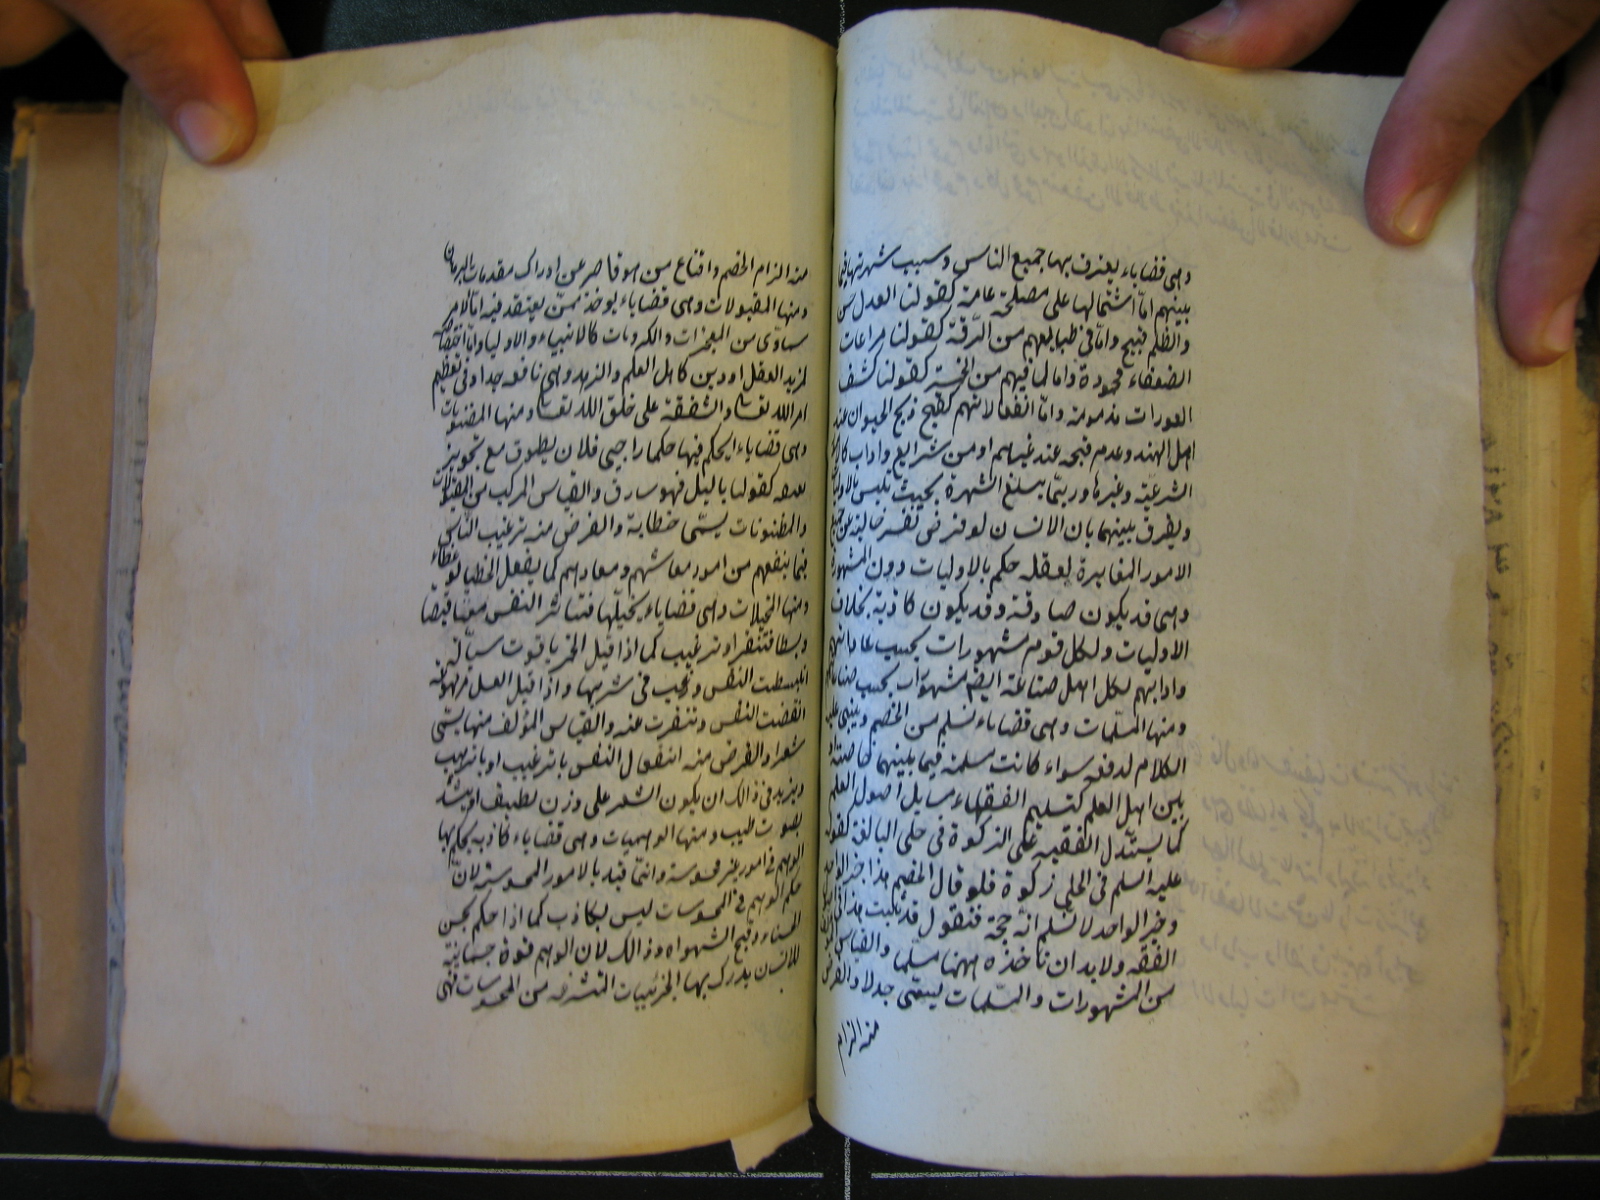 وهى قضاياء يعترف بها جميع الناس وسبب شهرتها فيما
بينهم اما اشتمالها على مصلحة عامة كقولنا العدل حسن
والظلم قبيح واما فى طبايعهم من الرقة كقولنا مراعات
الضعفاء محمودة واما لما فيهم من الحمية كقولنا كشف
العورات مذمومة واما انفعالاتهم كقبح ذبح الحيوان عند
اهل الهند وعدم قبحه عند غيرهم او من شرايع واداب
الشرعية وغيرها وربما يبلغ الشهرة بحيث تلبس بالاوليات
ويفرق بينهما بان الانسان لو فرض نفسه خالية عن جميع
الامور المغايرة لعقله حكم بالاوليات دون المشهورات
وهى قد يكون صادقة وقد يكون كاذبة بخلاف
الاوليات ولكل قوم مشهورات بحسب عاداتهم
وادابهم لكل اهل صناعة ايضا مشهورات بحسب صناعاتهم
ومنها المسلمات وهى قضاياء تسلم من الخصم ويبنى عليه
الكلام لدفعه سواء كانت مسلمة فيما بينهما خاصة او
بين اهل العلم كتسليم الفقهاء مسايل اصول العلم
كما يستدل الفقيه على الزكوة فى حلى البالغة كقوله
عليه السلم فى الحلى زكوة فلو قال الخصم هذا خبر الواحد
وخبر الواحد لا نسلم انه حجة فنقول قد ثبت هذا فى
الفقه ولا بد ان ناخذه ههنا مسلما والقياس
من المشهورات والمسلمات ليسمى جدلا والغرض
منه الزام
منه الزام الخصم واقناع من هو قاصر عن ادراك مقدمات البرهان
ومنها المقبولات وهى قضاياء يوخذ ممن يعتقد فيه اما لامر
سماوى من المعجزات والكرومات كالانبياء والاوليا واما اختصاصه
لمزيد العقل او دين كاهل العلم والزهد وهى نافعه جدا فى تعظيم
امر الله تعا والشفقة على خلق الله تعا ومنها المظنونات
وهى قضاياء يحكم فيها حكما راجحى فلان يطوف مع تجويز
بعده كقولنا بالليل فهو سارق والقياس المركب من المقبولات
والمظنونات يسمى خطابة والغرض منه ترغيب الناس
فيما ينفعهم من امور معاشهم ومعادهم كما يفعل الخطبا لو عظاء
ومنها المخيلات وهى قضاياء يخيلها فتتاثر النفس معنا قبضا
وبسطا فتنفر او ترغيب كما اذا قيل الخمر ياقوت سيالة
انبسطت النفس وترغب فى شربها واذا قيل العسل مرة مهوعة
انقضت النفس وتنفرت عنه والقياس المؤلف منها يسمى
شعرا والغرض منه انفعال النفس بالترغيب او بالترهيب
ويزيد فى ذالك ان يكون الشعر على وزن لطيف او ينشد
بصوت طيب ومنها الوهميات وهى قضاياء كاذبة يحكم بها
الوهم فى امور غير محسوسة وانما قيد بالامور المحسوسة لان
حكم الوهم فى المحسوسات ليس بكاذب كما اذا حكم بحسن
الحسناء وقبح الشهواء وذالك لان الوهم قوة جسمانية
للانسان يدرك بها الجزئيات المنتزعة من المحسوسات فهى